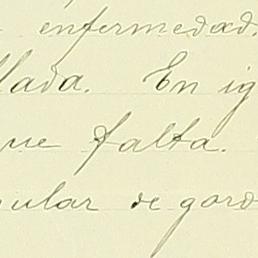 enfermedad.
llada. En ig
ue falta.
ular de gord